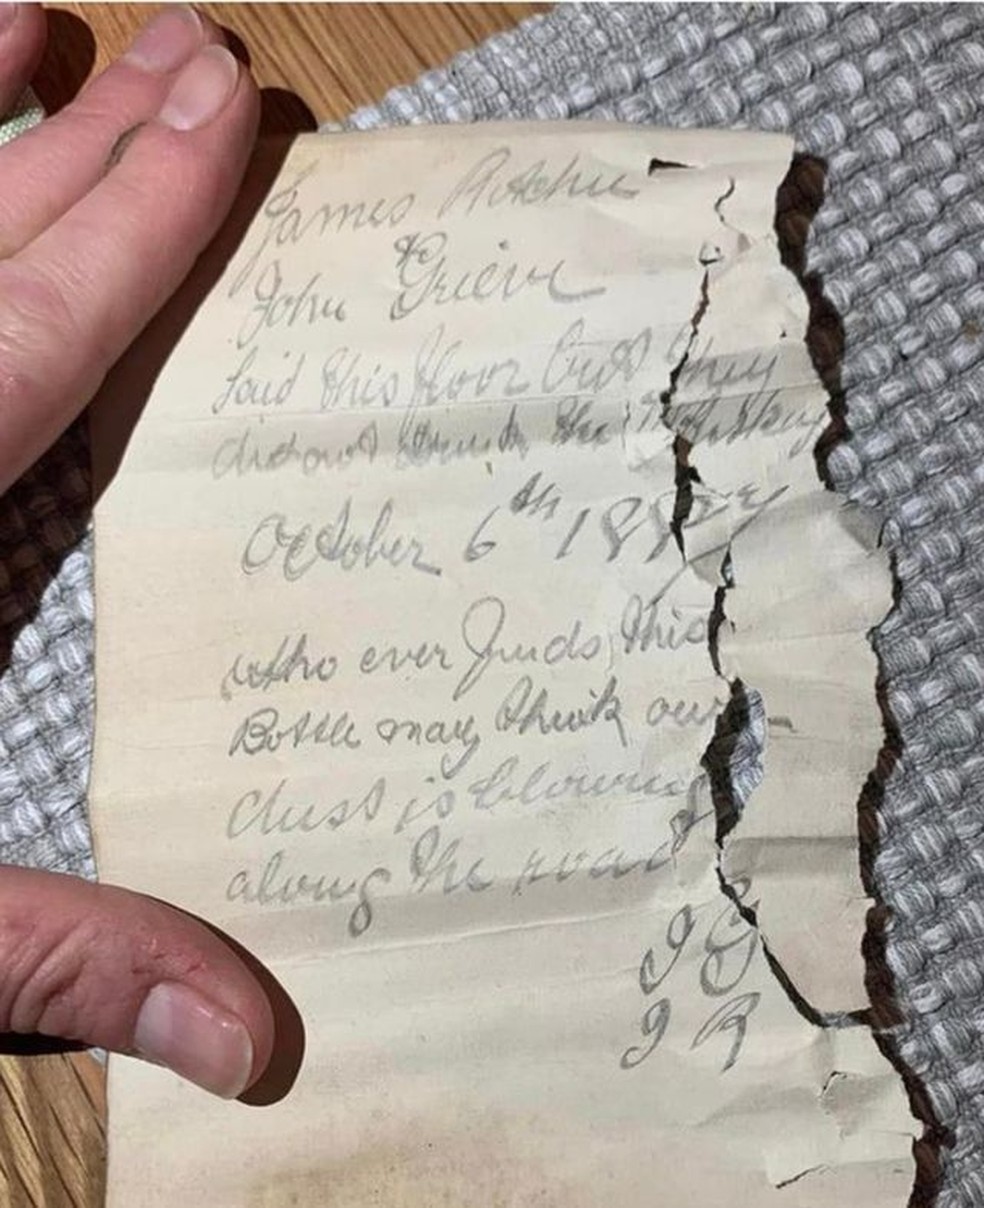 James Ritchie
&
John Grieve
laid this floor but they
did not drink the Whisky
October 6th 1887
who ever finds this
Bottle may think our
dust is blowing
along the road
J G
J R